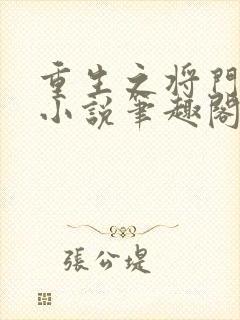 重生之将門
小說筆趣閣
張公堤